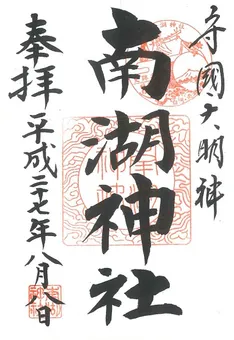 守國大明神
南湖神社
奉拝
平成二十七年八月八日